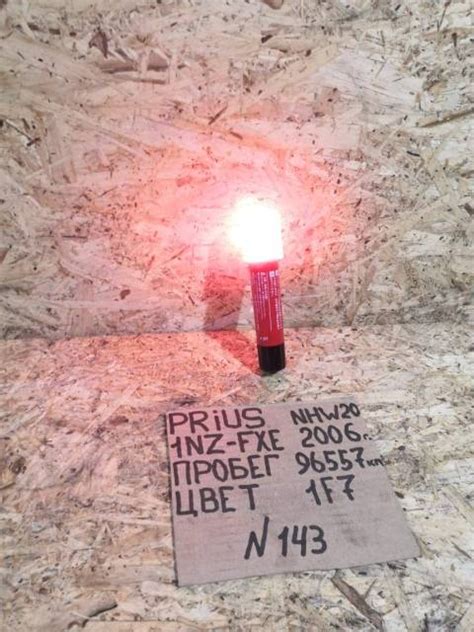 PRiUS NHW20
1NZ-FXE 2006г.
ПРОБЕГ 96557км
ЦВЕТ 1F7
N 143